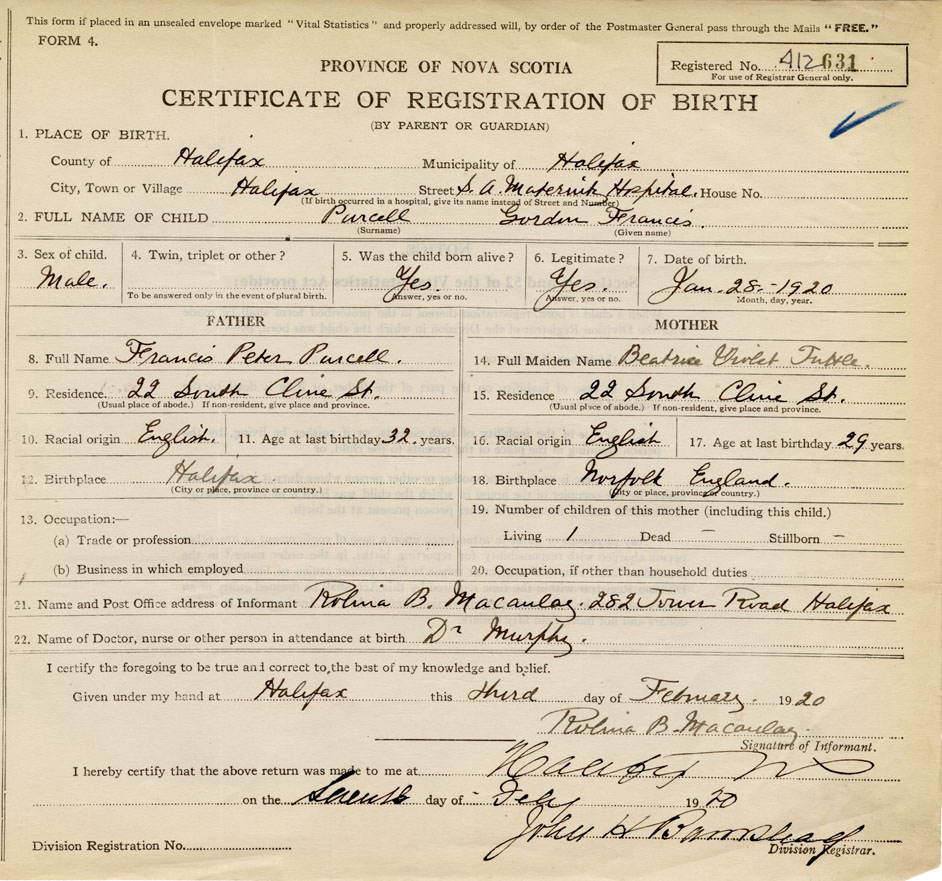 This form if placed in an unsealed envelope marked "Vital Statistics" and properly addressed will, by order of the Postmaster General pass through the Mails "FREE."
FORM 4.
Registered No. 412631
For use of Registrar General only.
PROVINCE OF NOVA SCOTIA
CERTIFICATE OF REGISTRATION OF BIRTH
(BY PARENT OR GUARDIAN)
1. PLACE OF BIRTH.
County of Halifax Municipality of Halifax
City, Town or Village Halifax Street S. A. Maternity Hospital. House No.
(If birth occurred in a hospital, give its name instead of Street and Number)
2. FULL NAME OF CHILD Purcell Gordon Francis.
(Surname) (Given name)
3. Sex of child. 4. Twin, triplet or other? 5. Was the child born alive? 6. Legitimate? 7. Date of birth.
Male. Yes. Yes. Jan. 28.-1920
To be answered only in the event of plural birth. Answer, yes or no. Answer, yes or no. Month, day, year.
FATHER MOTHER
8. Full Name Francis Peter Purcell. 14. Full Maiden Name Beatrice Violet Tuttle.
9. Residence 22 South Clive St. 15. Residence 22 South Clive St.
(Usual place of abode.) If non-resident, give place and province. (Usual place of abode.) If non-resident, give place and province.
10. Racial origin English. 11. Age at last birthday 32. years. 16. Racial origin English 17. Age at last birthday 29 years.
12. Birthplace Halifax 18. Birthplace Norfolk England.
(City or place, province or country.) (City or place, province or country.)
13. Occupation:— 19. Number of children of this mother (including this child.)
(a) Trade or profession Living 1 Dead — Stillborn —
(b) Business in which employed 20. Occupation, if other than household duties
21. Name and Post Office address of Informant Rolina B. Macaulay. 282 Tower Road Halifax
22. Name of Doctor, nurse or other person in attendance at birth Dr Murphy.
I certify the foregoing to be true and correct to the best of my knowledge and belief.
Given under my hand at Halifax this third day of February 1920
Rolina B. Macaulay
Signature of Informant.
I hereby certify that the above return was made to me at Halifax NS
on the day of Feby 1920
John H
Division Registration No. Division Registrar.